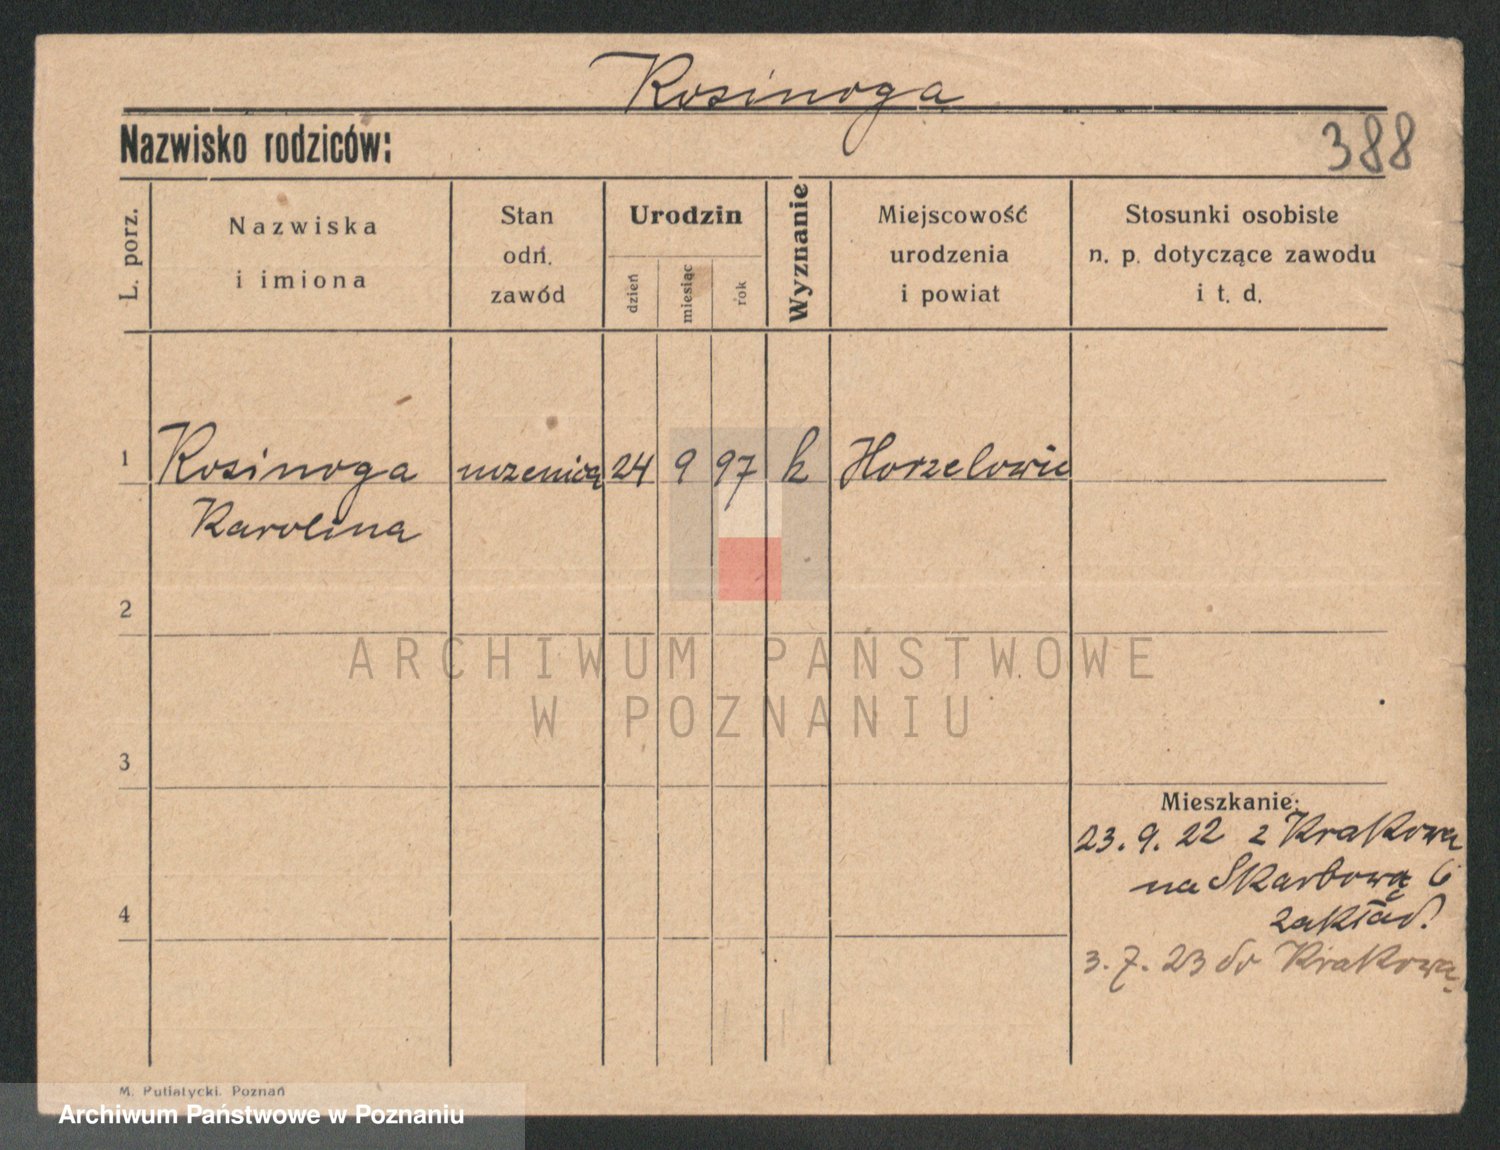 Rosinoga
Nazwisko rodziców:
388
L. porz.
Nazwiska
i imiona
Stan
odń.
zawód
Urodzin
dzień
miesiąc
rok
Wyznanie
Miejscowość
urodzenia
i powiat
Stosunki osobiste
n. p. dotyczące zawodu
i t. d.
1 Rosinoga uczenica 24 9 97 k
Karolina
2
ARCHIWUM PAŃSTWOWE
W POZNANIU
3
Mieszkanie:
23. 9. 22 z Krakowa
na Skarbową 6
zakład.
4
3. 7. 23 do Krakowa
M. Putiatycki. Poznań
Archiwum Państwowe w Poznaniu